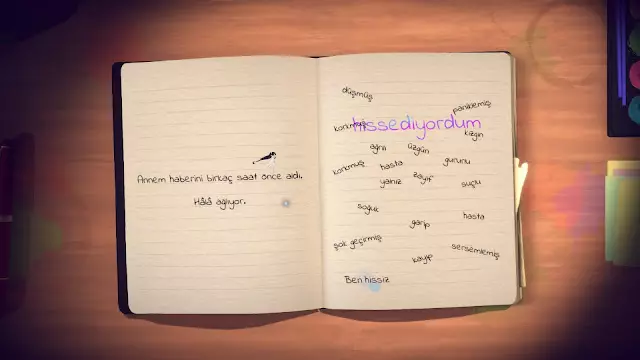 Annem haberini birkaç saat önce aldı.
Hâlâ ağlıyor.
düşmüş
paniklemiş
korkmuş
hissediyordum
kızgın
ağrılı
üzgün
korkmuş
hasta
gururlu
yalnız
zayıf
suçlu
soğuk
garip
hasta
şok geçirmiş
sersemlemiş
kayıp
Ben hissiz